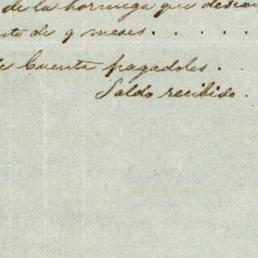 de la hormiga que
de 9 meses. . . . .
Cuenta pagadoles. .
Saldo recibido.